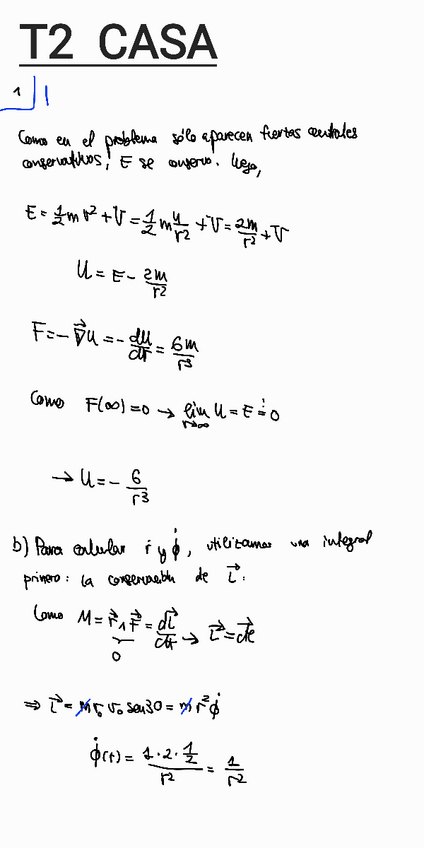 T2 CASA
1 |
Como en el problema sólo aparecen fuerzas centrales
conservativas, E se conserva. Luego,
E = 1/2 m v² + U = 1/2 m 4/r² + U = 2m/r² + U
U = E - 2m/r²
F = -∇⃗U = -dU/dr = 6m/r³
Como F(∞) = 0 → lim r→∞ U = E = 0
→ U = - 6/r³
b) Para calcular ṙ y φ̇, utilizamos una integral
primera: la conservación de L⃗:
Como M = r⃗ ∧ F⃗ = dL⃗/dt → L⃗ = cte
0
⇒ L⃗ = m r₀ v₀ sen30 = m r² φ̇
φ̇(t) = 1·2·1/2 / r² = 1/r²